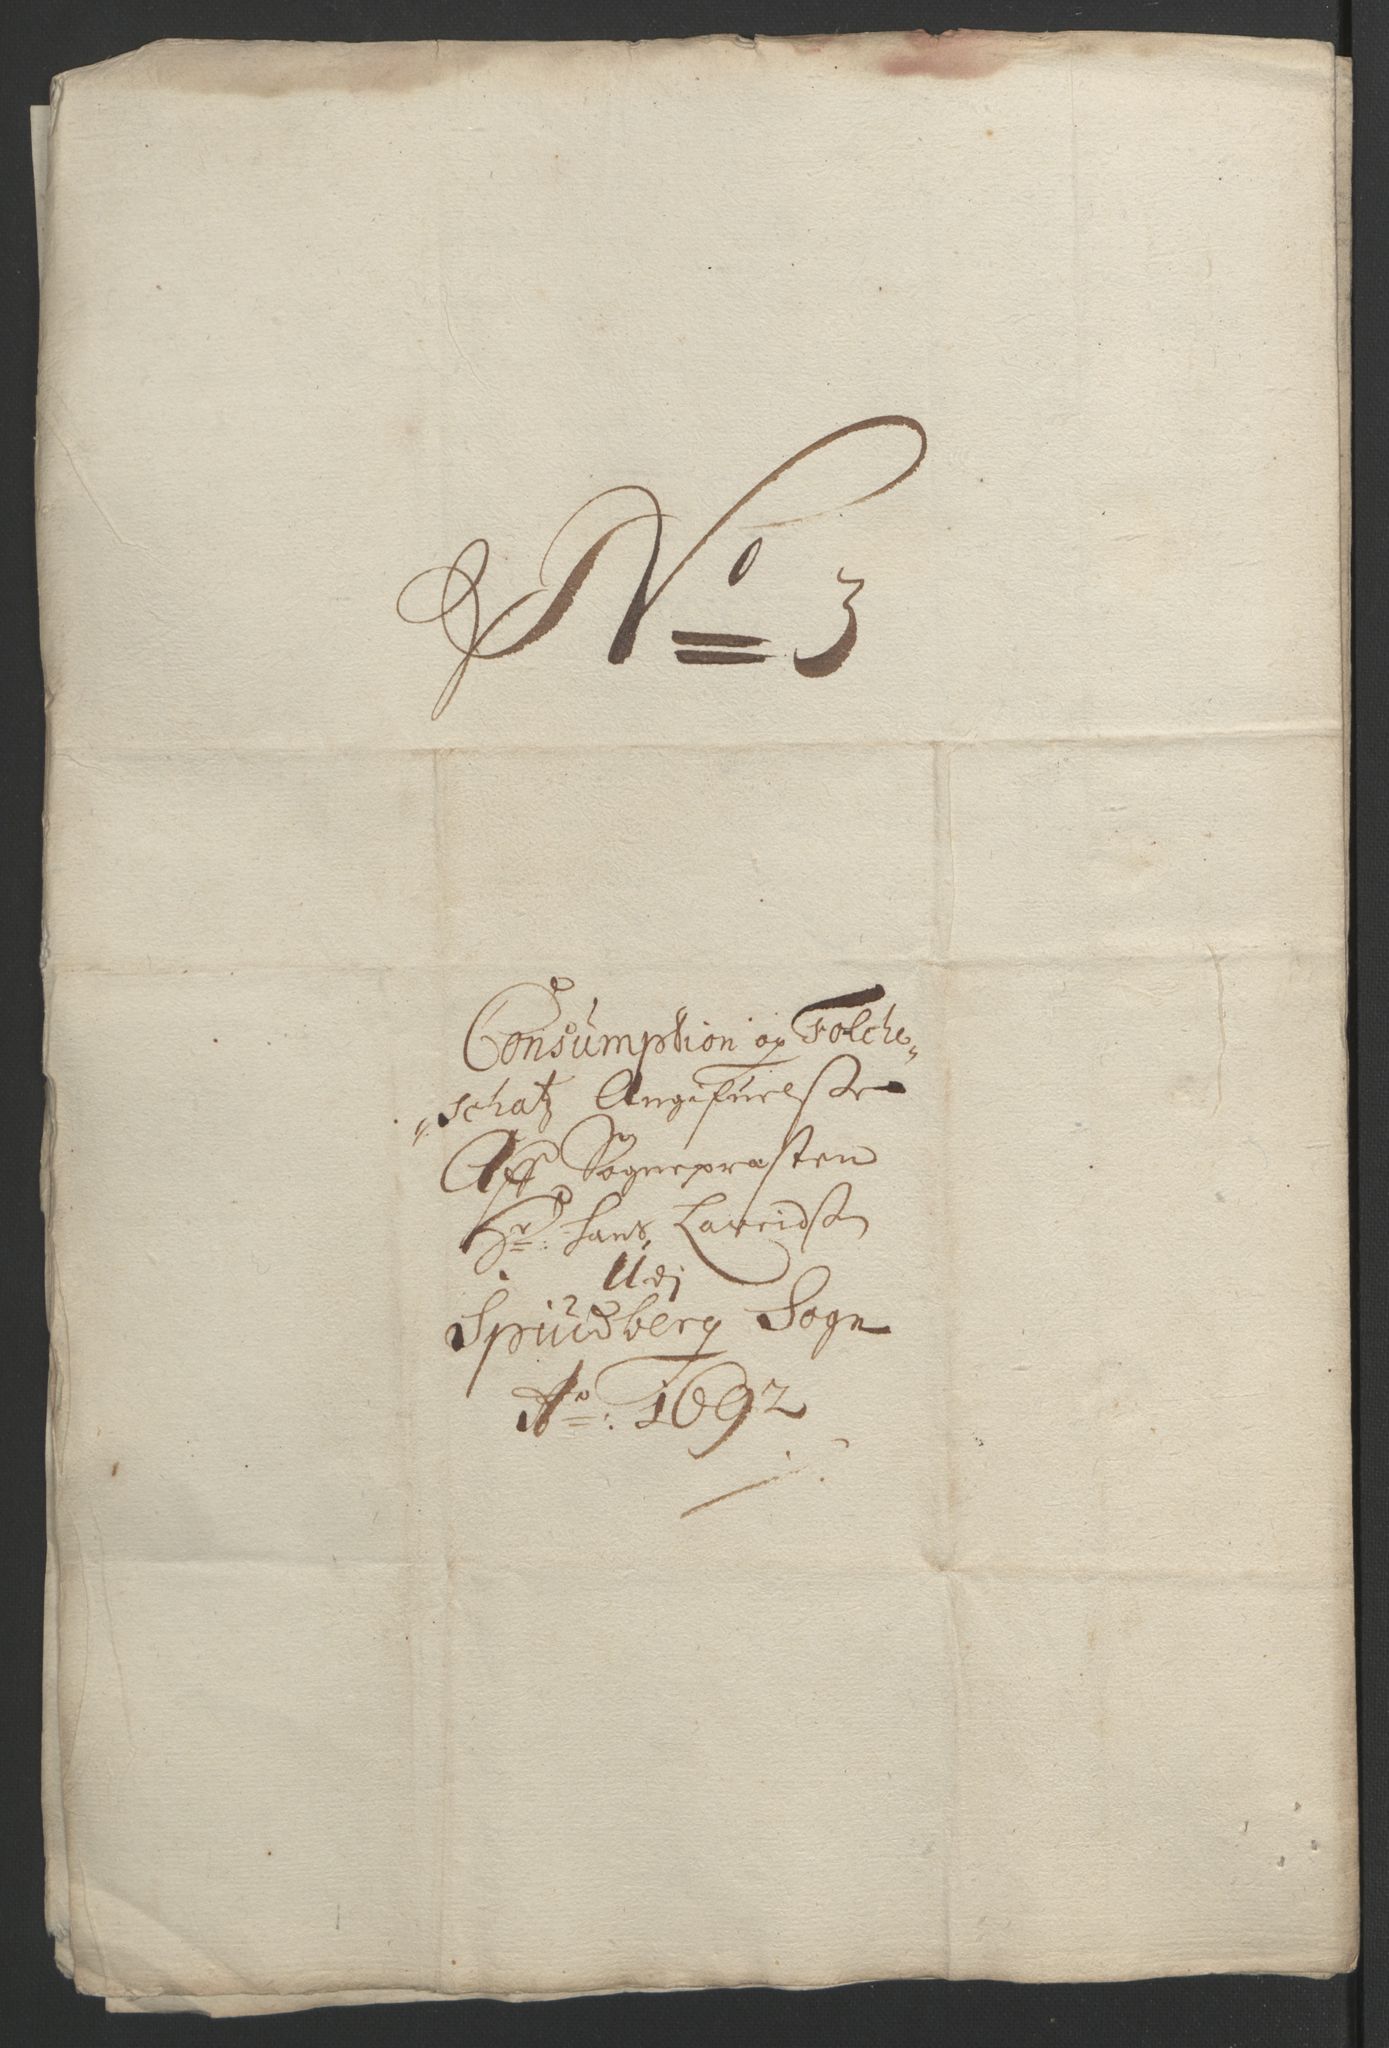 No 3
Consumption og Folche„
„schatz Angifuelse
Aff Sognepræsten
Hr: Hans Lauridsn
Udj
Spiudberg Sogn
Ao: 1692